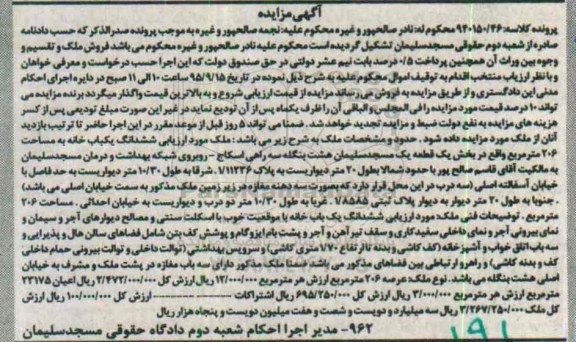 آگهی مزایده
پرونده کلاسه: ۹۲۰۱۵۰/۴۶ محکوم له: نادر صالحپور و غیره محکوم علیه: نجمه صالحپور و غیره به موجب پرونده صدرالذکر که حسب دادنامه
صادره از شعبه دوم حقوقی مسجدسلیمان تشکیل گردیده است محکوم علیه نادر صالحپور و غیره محکوم می باشد فروش ملک و تقسیم و
وجوه بین وراث آن همچنین پرداخت ۰/۵ درصد بابت نیم عشر دولتی در حق صندوق دولت که این اجرا حسب درخواست و معرفی خواهان
و با نظر ارزیاب منتخب اقدام به توقیف اموال محکوم علیه به شرح ذیل نموده در تاریخ ۹۵/۹/۱۵ ساعت ۱۰ الی ۱۱ صبح در دایره اجرای احکام
مدنی این دادگستری و از طریق مزایده به فروش می رساند مزایده از قیمت ارزیابی شروع و به بالاترین قیمت واگذار میگردد برنده مزایده می
تواند ۱۰ درصد قیمت مورد مزایده را فی المجلس و الباقی آن را ظرف یکماه پس از آن تودیع نماید در غیر این صورت مبلغ تودیعی پس از کسر
هزینه های مزایده به نفع دولت ضبط و مزایده تجدید خواهد شد. ضمنا می تواند ۵ روز قبل از موعد مقرر در این اجرا حاضر تا ترتیب بازدید
آنان از ملک مورد مزایده داده شود. حدود و مشخصات ملک به شرح زیر می باشد: ملک مورد ارزیابی ششدانگ یکباب خانه به مساحت
۲۰۶ مترمربع واقع در بخش یک قطعه یک مسجدسلیمان هشت بنگله سه راهی اسکاج - روبروی شبکه بهداشت و درمان مسجدسلیمان
به مالکیت آقای قاسم صالح پور با حدود شمالا بطول ۲۰ متر دیواریست به پلاک ۱/۱۱۲۳۶ شرقا به طول ۱۰/۳۰ متر دیواریست به حد فاصل با
خیابان آسفالته اصلی (سه درب در این محل قرار دارد که بصورت سه دهنه مغازه در زیر زمین ملک مذکور به سمت خیابان اصلی می باشد)
جنوبا به طول ۲۰ متر دیوار به دیوار پلاک ثبتی ۱/۸۵۸۵. غربا به طول ۱۰/۳۰ متر دو درب و دیواریست به خیابان احداثی. مساحت ۲۰۶
مترمربع. توضیحات فنی ملک: مورد ارزیابی ششدانگ یک باب خانه با موقعیت خوب با اسکلت سنتی و مصالح دیوارهای آجر و سیمان و
نمای بیرونی آجر و نمای داخلی سفیدکاری و سقف تیرآهن و آجر و پشت بام ایزوگام و پوشش کف بتن شامل فضاهای سالن هال و پذیرایی و
سه باب اتاق خواب و آشپزخانه (کف کاشی و بدنه تا ارتفاع ۱۷۰ متری کاشی) و سرویس بهداشتی (توالت داخلی و توالت بیرونی حمام داخلی
کف و بدنه کاشی) و راهرو ارتباطی بین فضاهای مذکور می باشد. ضمنا ملک مذکور دارای سه باب مغازه در پشت ملک و مشرف به خیابان
اصلی هشت بنگله می باشد. نوع ملک: عرصه ۲۰۶ مترمربع ارزش هر مترمربع ۱۲/۰۰۰/۰۰۰ ریال ارزش کل ۲/۴۷۲/۰۰۰/۰۰۰ ریال اعیان ۲۳۱۷۵
مترمربع ارزش هر مترمربع ۳/۰۰۰/۰۰۰ ریال ارزش کل ۶۹۵/۲۵۰/۰۰۰ ریال اشتراکات ........ ارزش کل ۱۰۰/۰۰۰/۰۰۰ ریال ارزش
کل ملک ۳/۲۶۷/۲۵۰/۰۰۰ ریال سه میلیارد و دویست و شصت و هفت میلیون دویست و پنجاه هزار ریال
۹۶۲- مدیر اجرا احکام شعبه دوم دادگاه حقوقی مسجدسلیمان
۱۹۱